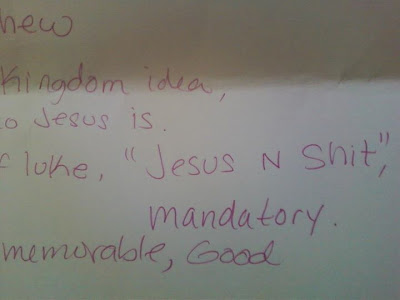 hew
Kingdom idea,
o Jesus is.
f luke, "Jesus N Shit",
mandatory.
memorable, Good